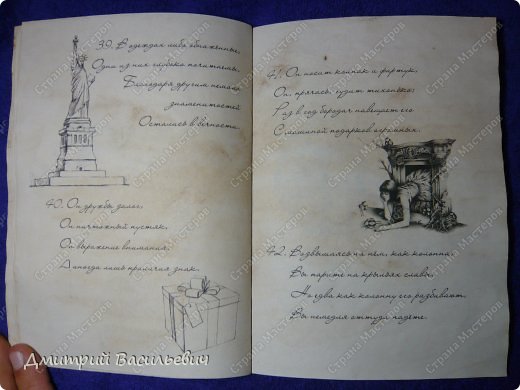 39. В одеждах либо обнаженные,
Одни из них глубоко почитаемы,
Благодаря другим немало
знаменитостей
Остались в вечности.
40. Он дружбы залог,
Он ничтожный пустяк,
Он выражение внимания,
А иногда лишь приличия знак.
41. Он носит колпак и фартук,
Он, прячась, чудит тихонько.
Раз в год бородач навещает его
С машиной подарков огромных.
42. Возвышаясь на нем, как колонна,
Вы парите на крыльях славы,
Но едва как колонну его разбивают,
Вы немедля оттуда падете.
Дмитрий Васильевич
Страна Мастеров